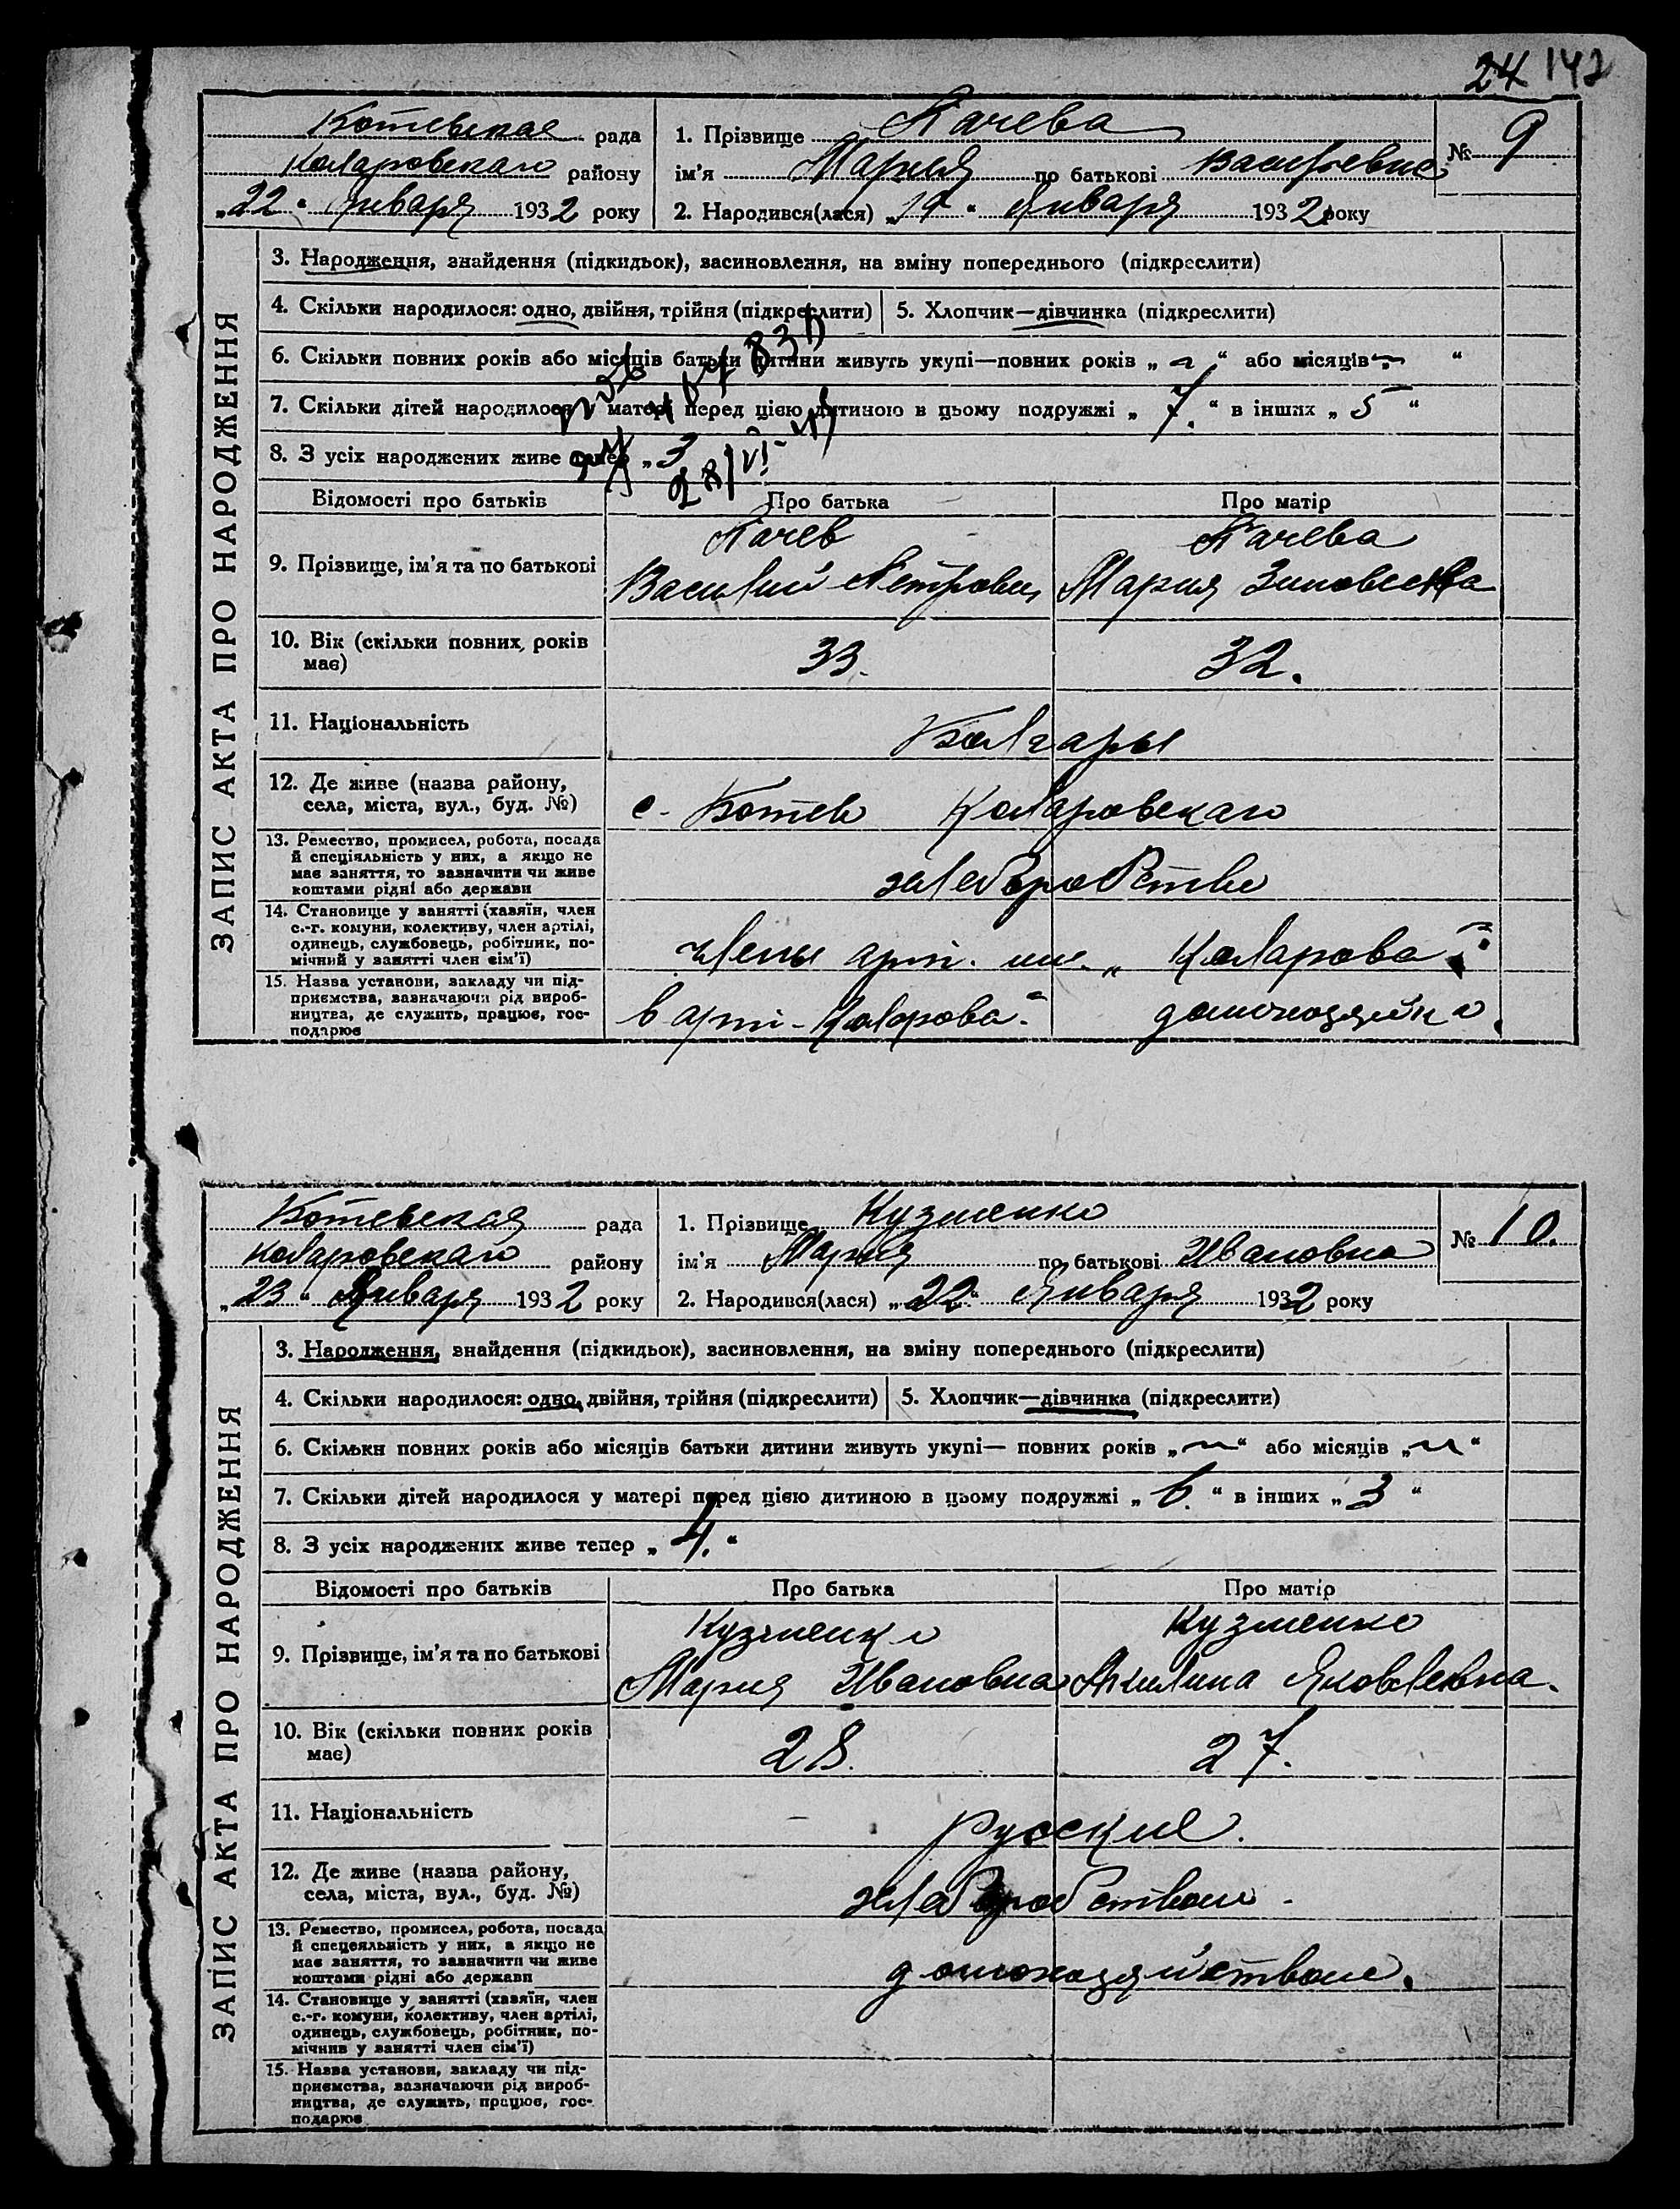 24 142
Ботевская рада
Коларовского району
„22“ Января 1932 року
1. Прізвище Пачева
ім'я Мария по батькові Васильевна
2. Народився(лася) „19“ Января 1932 року
№ 9
ЗАПИС АКТА ПРО НАРОДЖЕННЯ
3. Народження, знайдення (підкидьок), засиновлення, на зміну попереднього (підкреслити)
4. Скільки народилося: одно, двійня, трійня (підкреслити) 5. Хлопчик—дівчинка (підкреслити)
6. Скільки повних років або місяців батьки дитини живуть укупі—повних років „ “ або місяців „ “
7. Скільки дітей народилося у матері перед цією дитиною в цьому подружжі „7.“ в інших „5“
8. З усіх народжених живе тепер „3
28/VI-
Відомості про батьків Про батька Про матір
9. Прізвище, ім'я та по батькові
Пачев Пачева
Василий Петрович Мария Зиновеевна
10. Вік (скільки повних років
має)
33. 32.
11. Національність
Болгары
12. Де живе (назва району,
села, міста, вул., буд. №)
с. Ботево Коларовского
13. Ремество, промисел, робота, посада
й спеціяльність у них, а якщо не
має заняття, то зазначити чи живе
коштами рідні або держави
хлебороbство
14. Становище у занятті (хазяїн, член
с.-г. комуни, колективу, член артілі,
одинець, службовець, робітник, по-
мічний у занятті член сім'ї)
члены арт. им. „Коларова“
15. Назва установи, закладу чи під-
приємства, зазначаючи рід вироб-
ництва, де служить, працює, гос-
подарює
в арт. Коларова“ домохозяйка.
Ботевская рада
Коларовского району
„23“ Января 1932 року
1. Прізвище Кузменко
ім'я Мария по батькові Ивановна
2. Народився(лася) „22“ Января 1932 року
№ 10.
ЗАПИС АКТА ПРО НАРОДЖЕННЯ
3. Народження, знайдення (підкидьок), засиновлення, на зміну попереднього (підкреслити)
4. Скільки народилося: одно, двійня, трійня (підкреслити) 5. Хлопчик—дівчинка (підкреслити)
6. Скільки повних років або місяців батьки дитини живуть укупі— повних років „ “ або місяців „ “
7. Скільки дітей народилося у матері перед цією дитиною в цьому подружжі „6.“ в інших „3“
8. З усіх народжених живе тепер „4.“
Відомості про батьків Про батька Про матір
9. Прізвище, ім'я та по батькові
Кузменко Кузменко
Мария Ивановна Акилина Яковлевна.
10. Вік (скільки повних років
має)
28. 27.
11. Національність
русские.
12. Де живе (назва району,
села, міста, вул., буд. №)
хлеборобством
13. Ремество, промисел, робота, посада
й спецеяльність у них, а якщо не
має заняття, то зазначити чи живе
коштами рідні або держави
домохозяйством.
14. Становище у занятті (хазяїн, член
с.-г. комуни, колективу, член артілі,
одинець, службовець, робітник, по-
мічнив у занятті член сім'ї)
15. Назва установи, закладу чи під-
приємства, зазначаючи рід вироб-
ництва, де служить, працює, гос-
подарює